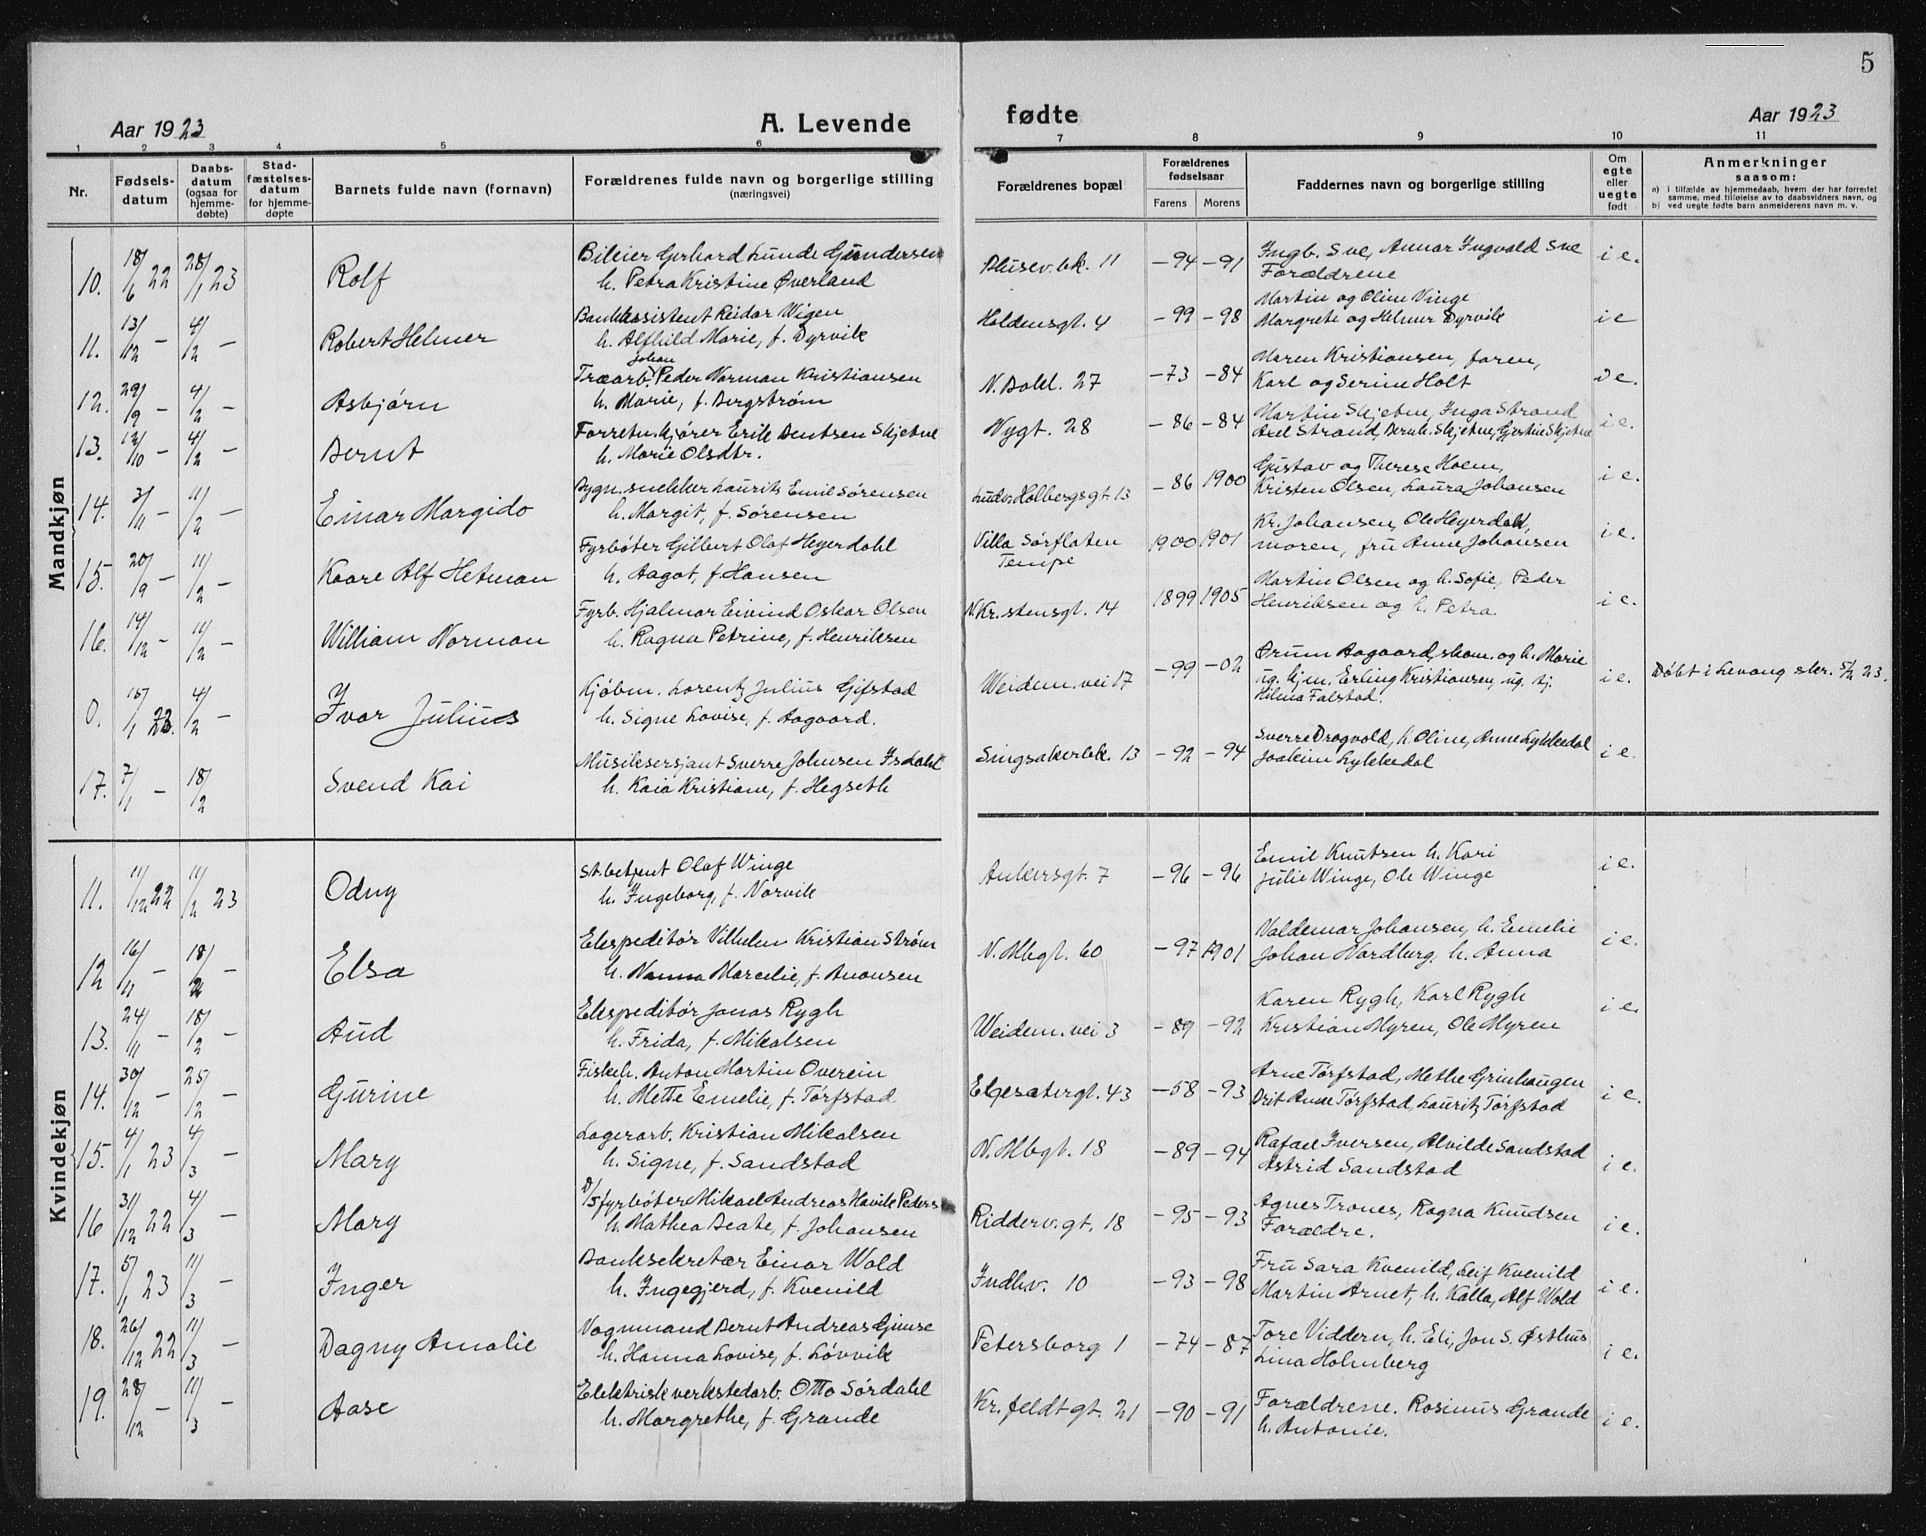 5
Aar 1923
A. Levende
fødte
Aar 1923
1 2 3 4 5 6 7 8 9 10 11
Nr.
Fødsels-
datum
Daabs-
datum
(ogsaa for
hjemme-
døbte)
Stad-
fæstelses-
datum
for hjemme-
døpte
Barnets fulde navn (fornavn)
Forældrenes fulde navn og borgerlige stilling
(næringsvei)
Forældrenes bopæl
Forældrenes
fødselsaar
Farens Morens
Faddernes navn og borgerlige stilling
Om
egte
eller
uegte
født
Anmerkninger
saasom:
a) i tilfælde av hjemmedaab, hvem der har forrettet
samme, med tilføielse av to daabsvidners navn, og
b) ved uegte fødte barn anmelderens navn m. v.
Mandkjøn
10. 18/6 22 28/1 23 Rolf
Bileier Gerhard Lunde Gundersen
h. Petra Kristine Øverland
11 -94 -91
Ingb. Sve, Annar Ingvald Sve
Forældrene
i e.
11. 13/12 - 4/2 - Robert Helmer
Bankassistent Reidar Wigen
h. Alfhild Marie, f. Dyrvik
Holdensgt. 4 -99 -98
Martin og Oline Vinge
Margrete og Helmer Dyrvik
i e
12. 29/9 - 4/2 - Asbjørn
Johan
Træarb. Peder Norman Kristiansen
h. Marie, f. Bergstrøm
N. Bakl. 27 -73 -84
Maren Kristiansen, faren,
Karl og Serine Holt
i e.
13. 12/10 - 4/2 - Bernt
Forretn.kjører Erik Bentsen Skjetne
h. Marie Olsdtr.
Nygt. 28 -86 -84
Martin Skjetne, Inga Strand
Axel Strand, Bernh. Skjetne, Gjertine Skjetne
i e.
14. 3/11 - 11/2 - Einar Margido
Bygn.snekker Laurits Emil Sørensen
h. Margit, f. Sørensen
Ludv. Holbergsgt. 13 -86 1900
Gustav og Therese Hoem,
Kristen Olsen, Laura Johansen
i e.
15. 20/9 - 11/2 - Kaare Alf Hetman
Fyrbøter Gilbert Olaf Heyerdahl
h. Aagot, f. Hansen
Villa Sørflaten
Tempe
1900 1901
Kr. Johansen, Ole Heyerdahl,
moren, fru Anne Johansen
i e.
16. 14/12 - 11/2 - William Norman
Fyrb. Hjalmar Eivind Oskar Olsen
h. Ragna Petrine, f. Henriksen
N. Kr.stensgt. 14 1899 1905
Martin Olsen og h. Sofie, Peder
Henriksen og h. Petra
i e.
0. 15/1 23. 4/2 - Ivar Julius
Kjøbm. Lorentz Julius Gifstad
h. Signe Lovise, f. Aagaard.
Weidem.vei 17 -99 -02
Ørum Aagaard, skom. og h. Marie
ug. hjm. Erling Kristiansen, ug. tj.
Hilma Falstad.
i e. Døbt i Levang skr. 5/2 23.
17. 7/1 - 18/2 Svend Kai
Musiksersjant Sverre Johnsen Isdahl
h. Kaia Kristiane, f. Hegseth
Singsakerbk. 13 -92 -94
Sverre Dragvold, h. Oline, Anne Lykkedal
Joakim Lykkedal
i e.
Kvindekjøn
11. 11/12 22 11/2 23 Odny
St.betjent Olaf Winge
h. Ingeborg, f. Norvik
Ankersgt. 7 -96 -96
Emil Knutsen h. Kari
Julie Winge, Ole Winge
i e.
12 16/11 - 18/2 - Elsa
Ekspeditør Vilhelm Kristian Strøm
h. Nanna Marcelie, f. Amonsen
N. Mbgt. 60 -97 1901
Valdemar Johansen, h. Emelie
Johan Nordberg, h. Anna
i e.
13. 24/11 - 18/2 - Aud
Ekspeditør Jonas Rygh
h. Frida, f. Mikalsen
Weidem.vei 3 -89 -92
Karen Rygh, Karl Rygh
Kristian Myren, Ole Myren
i e.
14. 30/12 - 25/2 - Gurine
Fiskeh. Anton Martin Overein
h. Mette Emelie, f. Tørfstad
Elgesætergt. 43 -58 -93
Arne Tørfstad, Methe Grinhaugen
Brit Anne Tørfstad, Lauritz Tørfstad
i e.
15. 4/1 23 4/3 - Mary
Lagerarb. Kristian Mikalsen
h. Signe, f. Sandstad
N. Mbgt. 18 -89 -94
Rafael Iversen, Alvilde Sandstad
Astrid Sandstad
i e.
16 31/12 22 4/3 - Mary
D/S fyrbøter Mikael Andreas Havik Peders
h. Mathea Beate, f. Johansen
Ridderv. gt. 18 -95 -93
Agnes Trones, Ragna Knudsen
Forældre.
i e.
17. 5/1 23 11/3 - Inger
Banksekretær Einar Wold
h. Ingegjerd, f. Kvenild
Indh.v. 10 -93 -98
Fru Sara Kvenild, Leif Kvenild
Martin Arnet, h. Kalla, Alf Wold
i e.
18. 26/12 22 11/3 - Dagny Amalie
Vognmand Bernt Andreas Gimse
h. Hanna Lovise, f. Løvvik
Petersborg 1 -74 -87
Tore Viddern, h. Eli, Jon S. Østhus
Lina Holmberg
i e.
19. 28/12 - 11/3 - Aase
Elektrisk verkstedarb. Otto Sørdahl
h. Margrethe, f. Grande
Kr. feldtgt. 21 -90 -91
Forældrene. Rosinus Grande
h. Antonie.
i e.